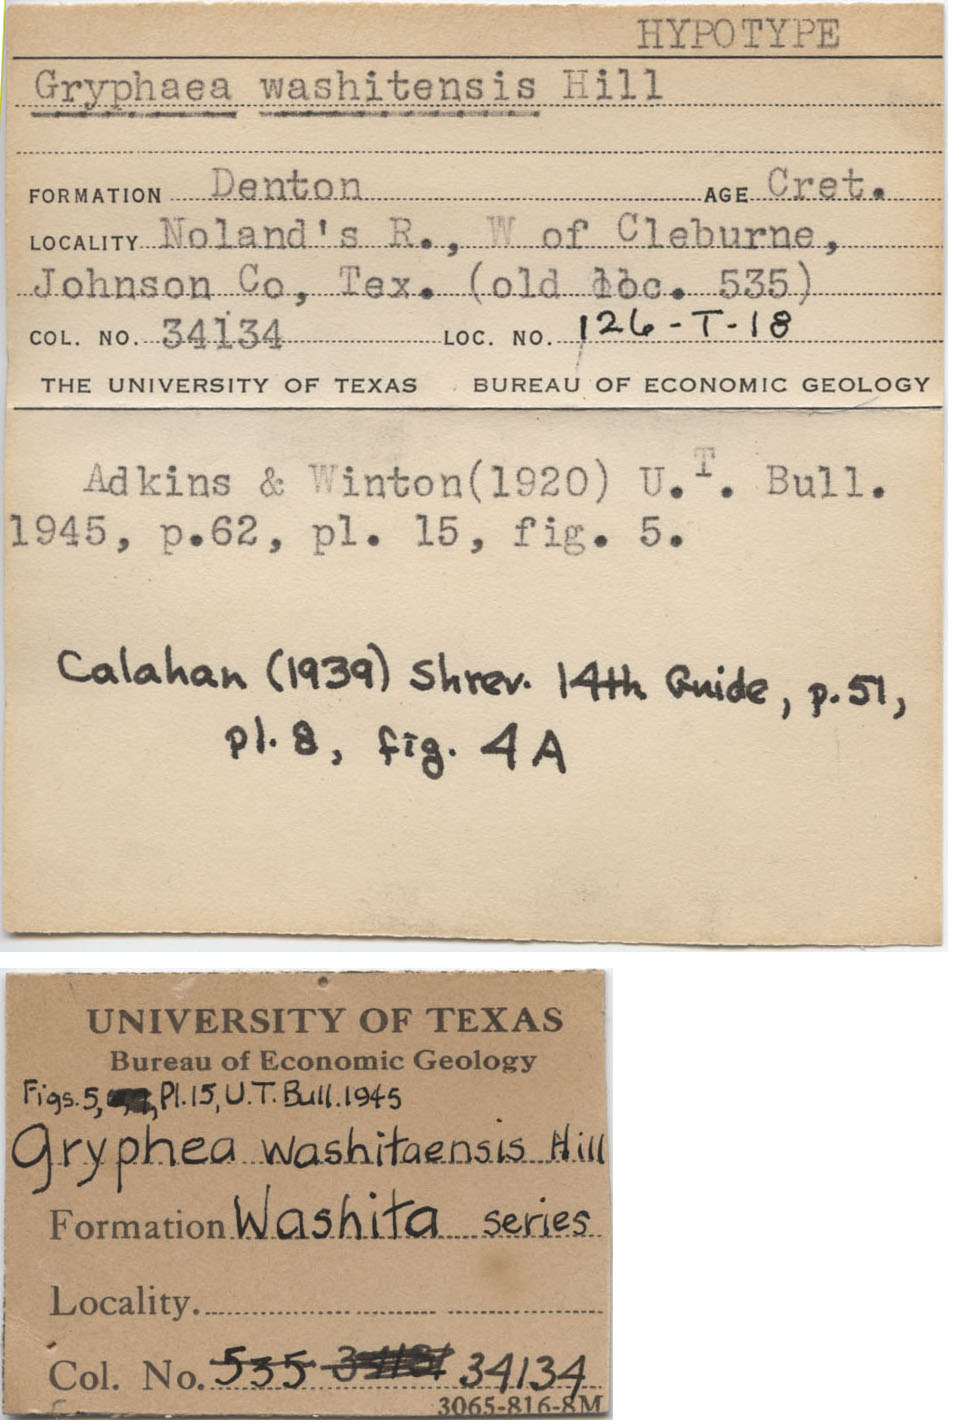 HYPOTYPE
Gryphaea washitensis Hill
FORMATION Denton AGE Cret.
LOCALITY Noland's R., W of Cleburne,
Johnson Co, Tex. (old loc. 535)
COL. NO. 34134 LOC. NO. 126-T-18
THE UNIVERSITY OF TEXAS BUREAU OF ECONOMIC GEOLOGY
Adkins & Winton(1920) U.T. Bull.
1945, p.62, pl. 15, fig. 5.
Calahan (1939) Shrev. 14th Guide, p.51,
pl. 8, fig. 4A
UNIVERSITY OF TEXAS
Bureau of Economic Geology
Figs. 5, Pl. 15, U.T. Bull. 1945
Gryphea washitaensis Hill
Formation Washita series
Locality.
Col. No. 535 34134
3065-816-8M